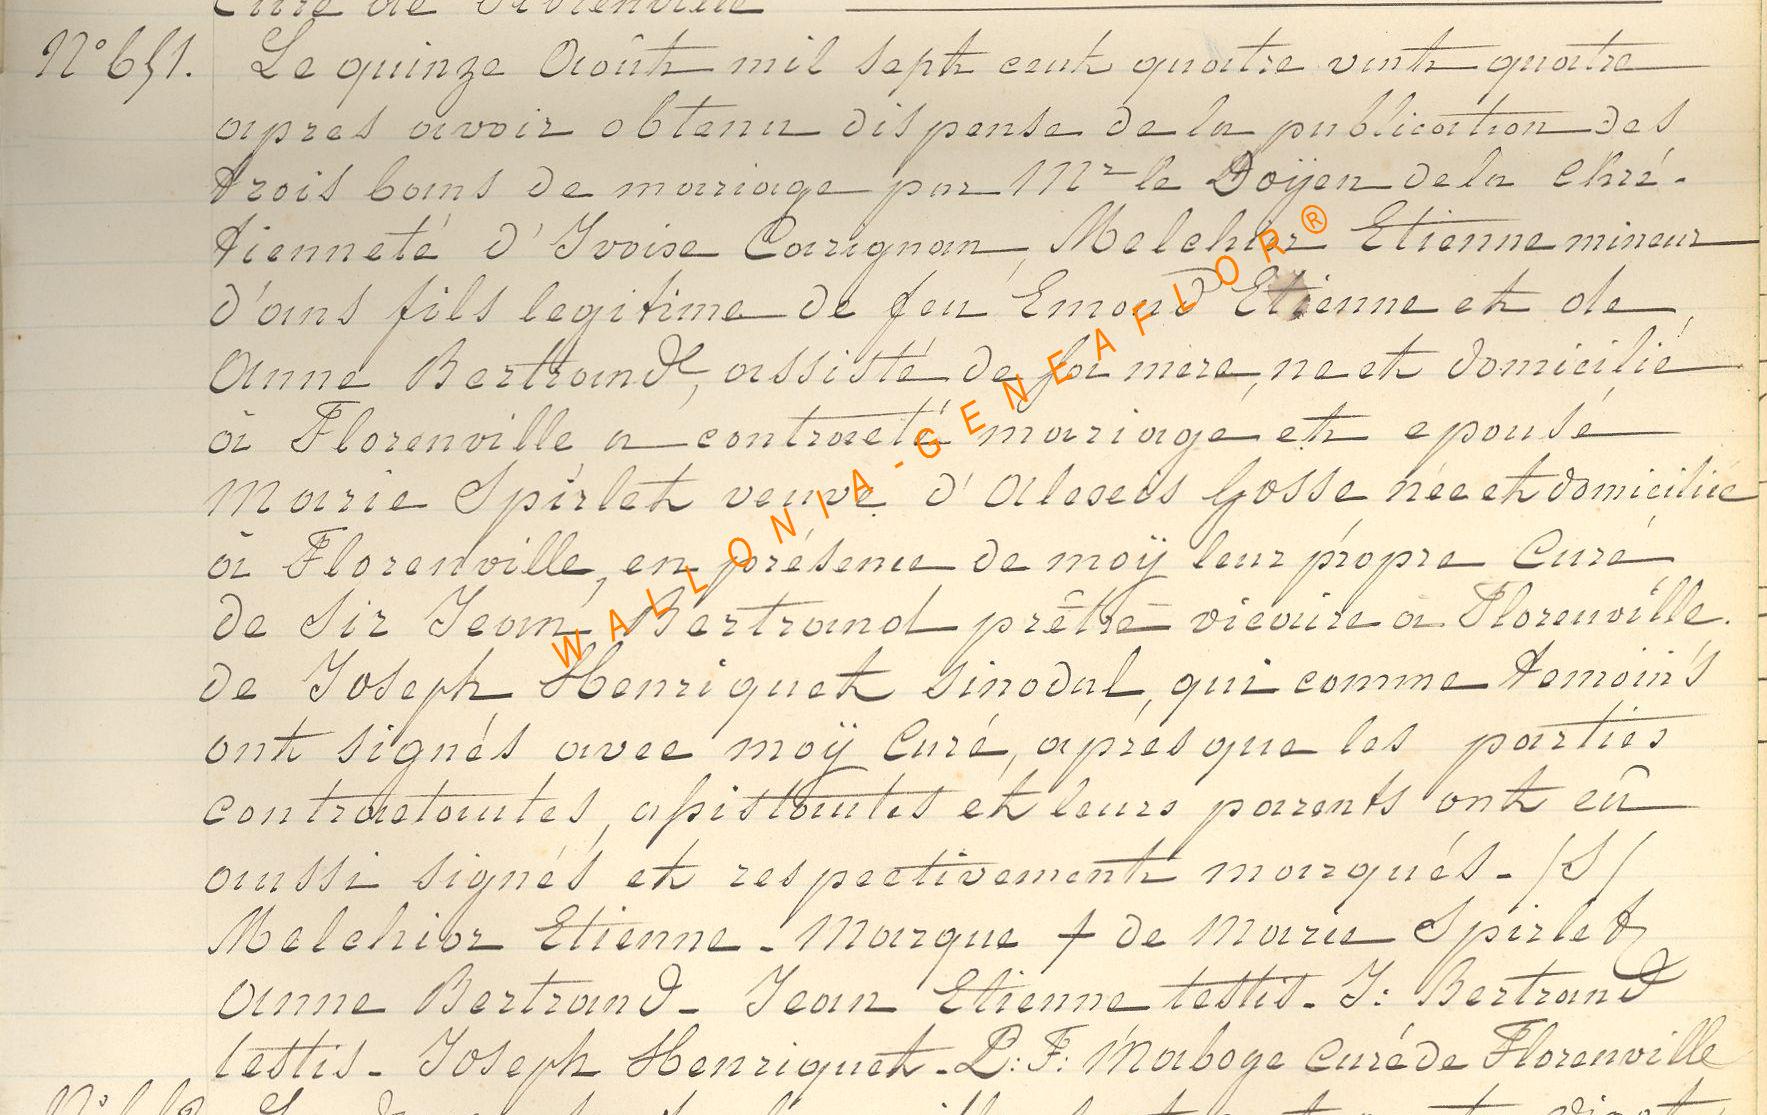 Curé de Florenville
N° 651. Le quinze Août mil sept cent quatre vint quatre
apres avoir obtenu dispense de la publication des
trois bans de mariage par Mr le Doÿen de la Chré-
tienneté d'Ivoise Carignan, Melchior Etienne mineur
d'ans fils legitime de feu Emond Etienne et de
Anne Bertrand, assisté de sa mere, ne et domicilié
à Florenville a contracté mariage et epousé
Marie Spirlet veuve d'Alexis Gosse née et domiciliée
à Florenville, en présence de moÿ leur propre Curé
de Sir Jean Bertrand prêtre vicaire à Florenville.
de Joseph Henriquet sinodal, qui comme temoins
ont signés avec moÿ Curé, aprés que les parties
contractantes, assistantes et leurs parents ont eû
aussi signés et respectivement marqués - (S)
Melchior Etienne - Marque + de Marie Spirlet
Anne Bertrand - Jean Etienne testis - J: Bertrand
testis - Joseph Henriquet - P: F: Maboge Curé de Florenville
WALLONIA-GENEAFLOR®